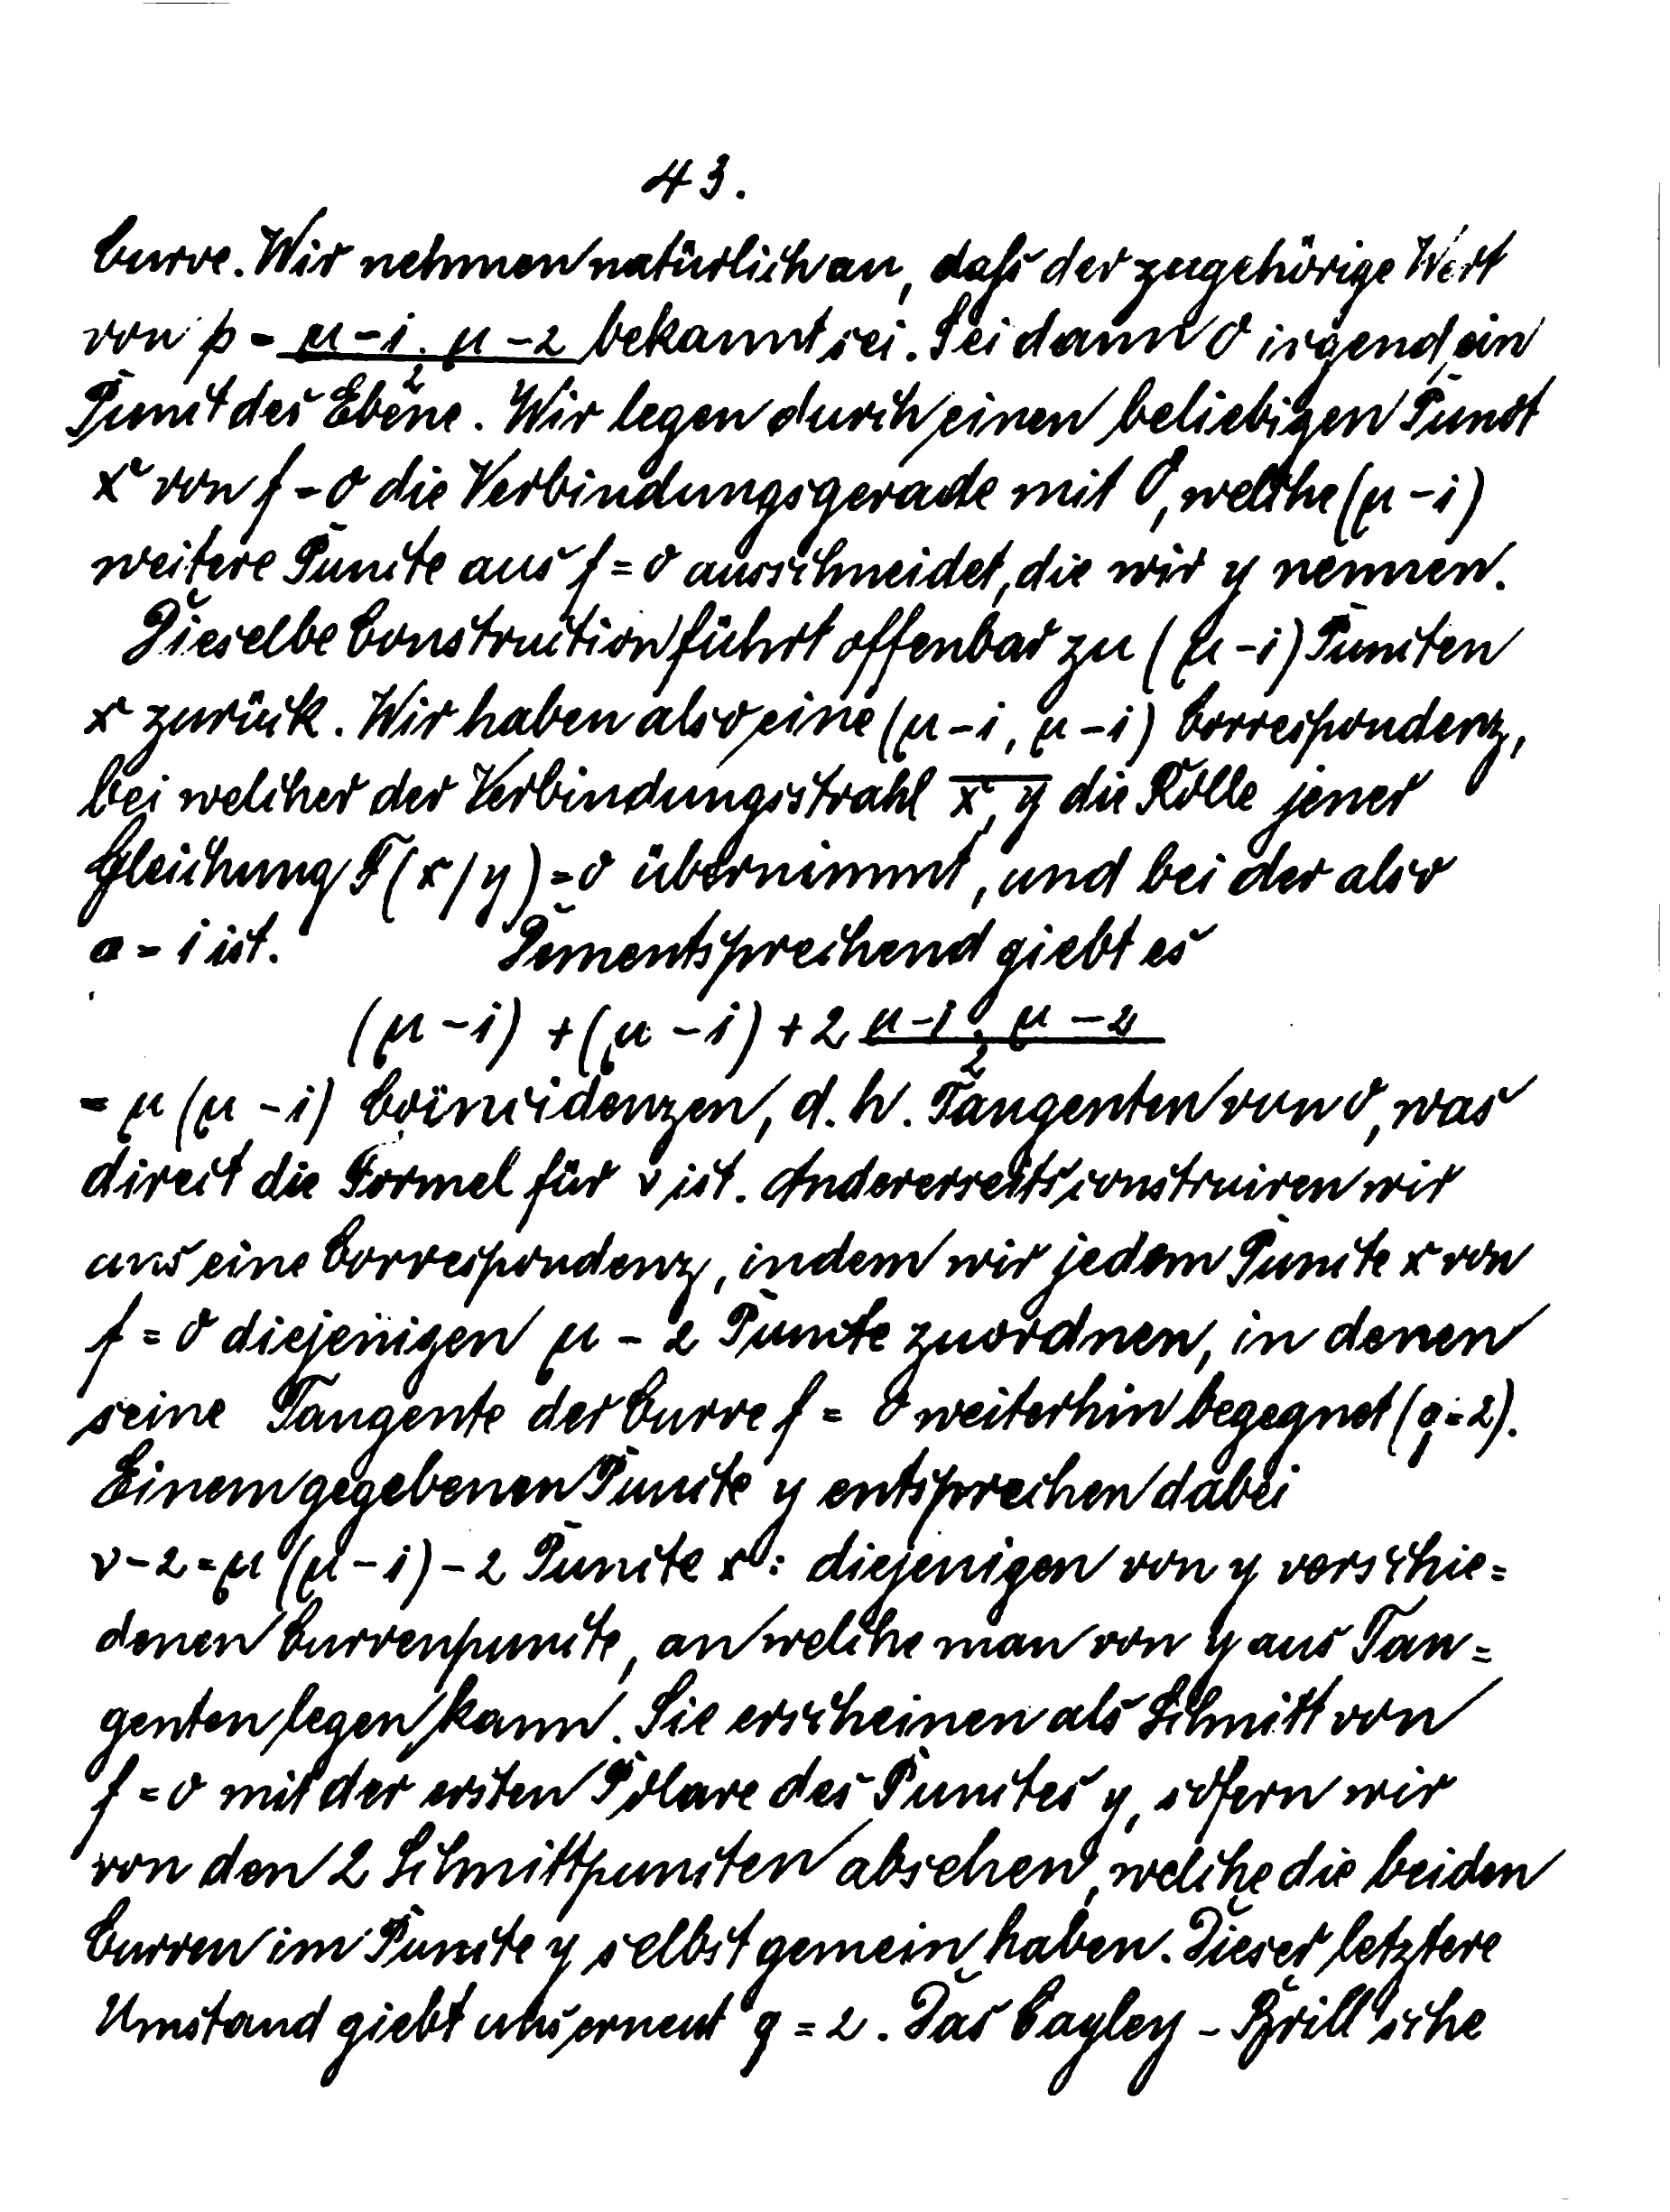 43.
Curve. Wir nehmen natürlich an, daſs der zugehörige Wert
von p = (μ-1 . μ-2)/2 bekannt sei. Sei dann O irgend ein
Punct der Ebene. Wir legen durch einen beliebigen Punct
x von f = 0 die Verbindungsgerade mit O, welche (μ-1)
weitere Puncte aus f = 0 ausschneidet, die wir y nennen.
Dieselbe Construction führt offenbar zu (μ-1) Puncten
x zurück. Wir haben also eine (μ-1, μ-1) Correspondenz,
bei welcher der Verbindungsstrahl x, y die Rolle jener
Gleichung F(x/y) = 0 übernimmt, und bei der also
a = 1 ist. Dementsprechend giebt es
(μ-1) + (μ-1) + 2 (μ-1 . μ-2)/2
= μ(μ-1) Coïncidenzen, d. h. Tangenten von O, was
direct die Formel für ν ist. Andererseits construiren wir
uns eine Correspondenz, indem wir jedem Puncte x von
f = 0 diejenigen μ - 2 Puncte zuordnen, in denen
seine Tangente der Curve f = 0 weiterhin begegnet (q=2).
Einem gegebenen Puncte y entsprechen dabei
ν-2 = μ(μ-1)-2 Puncte x: diejenigen von y verschie=
denen Curvenpuncte, an welche man von y aus Tan=
genten legen kann. Sie erscheinen als Schnitt von
f = 0 mit der ersten Polare des Punctes y, sofern wir
von den 2 Schnittpuncten absehen, welche die beiden
Curven im Puncte y selbst gemein haben. Dieser letztere
Umstand giebt uns erneut q = 2. Das Cayley - Brill'sche